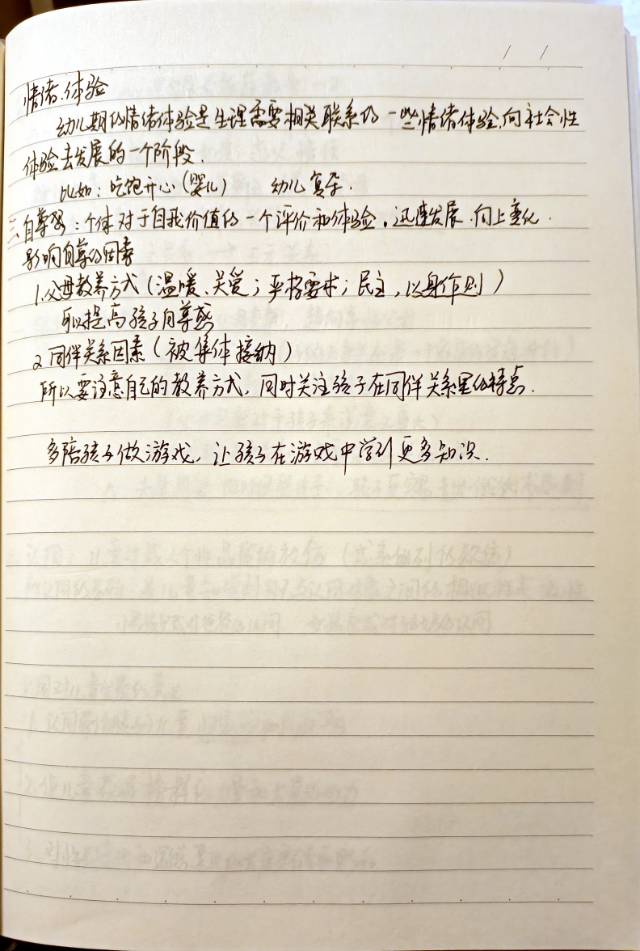 情绪体验
幼儿期的情绪体验是生理需要相关联系的一些情绪体验向社会性
体验去发展的一个阶段.
比如:吃饱开心(婴儿) 幼儿复杂.
三、自尊感:个体对于自我价值的一个评价和体验,迅速发展.向上变化.
影响自尊的因素
1.父母教养方式(温暖、关爱;严格要求;民主,以身作则)
可以提高孩子自尊感
2.同伴关系因素(被集体接纳)
所以要注意自己的教养方式,同时关注孩子在同伴关系里的特点.
多陪孩子做游戏,让孩子在游戏中学到更多知识.